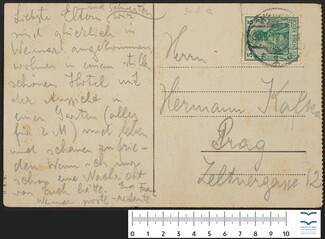 Liebste Eltern und Schwestern wir
sind glücklich in
Weimar angekommen,
wohnen in einem stillen
schönen Hotel mit
der Aussicht in
einen Garten (alles
für 2 M) und leben
und schauen zufrie-
den. Wenn ich nur
schon eine Nachricht
von Euch hätte. Euer Franz
Weimar poste-restante
Herrn
Hermann Kafka
Prag
Zeltnergasse 12
5
0 1 2 3 4 5 6 7 8 9 10